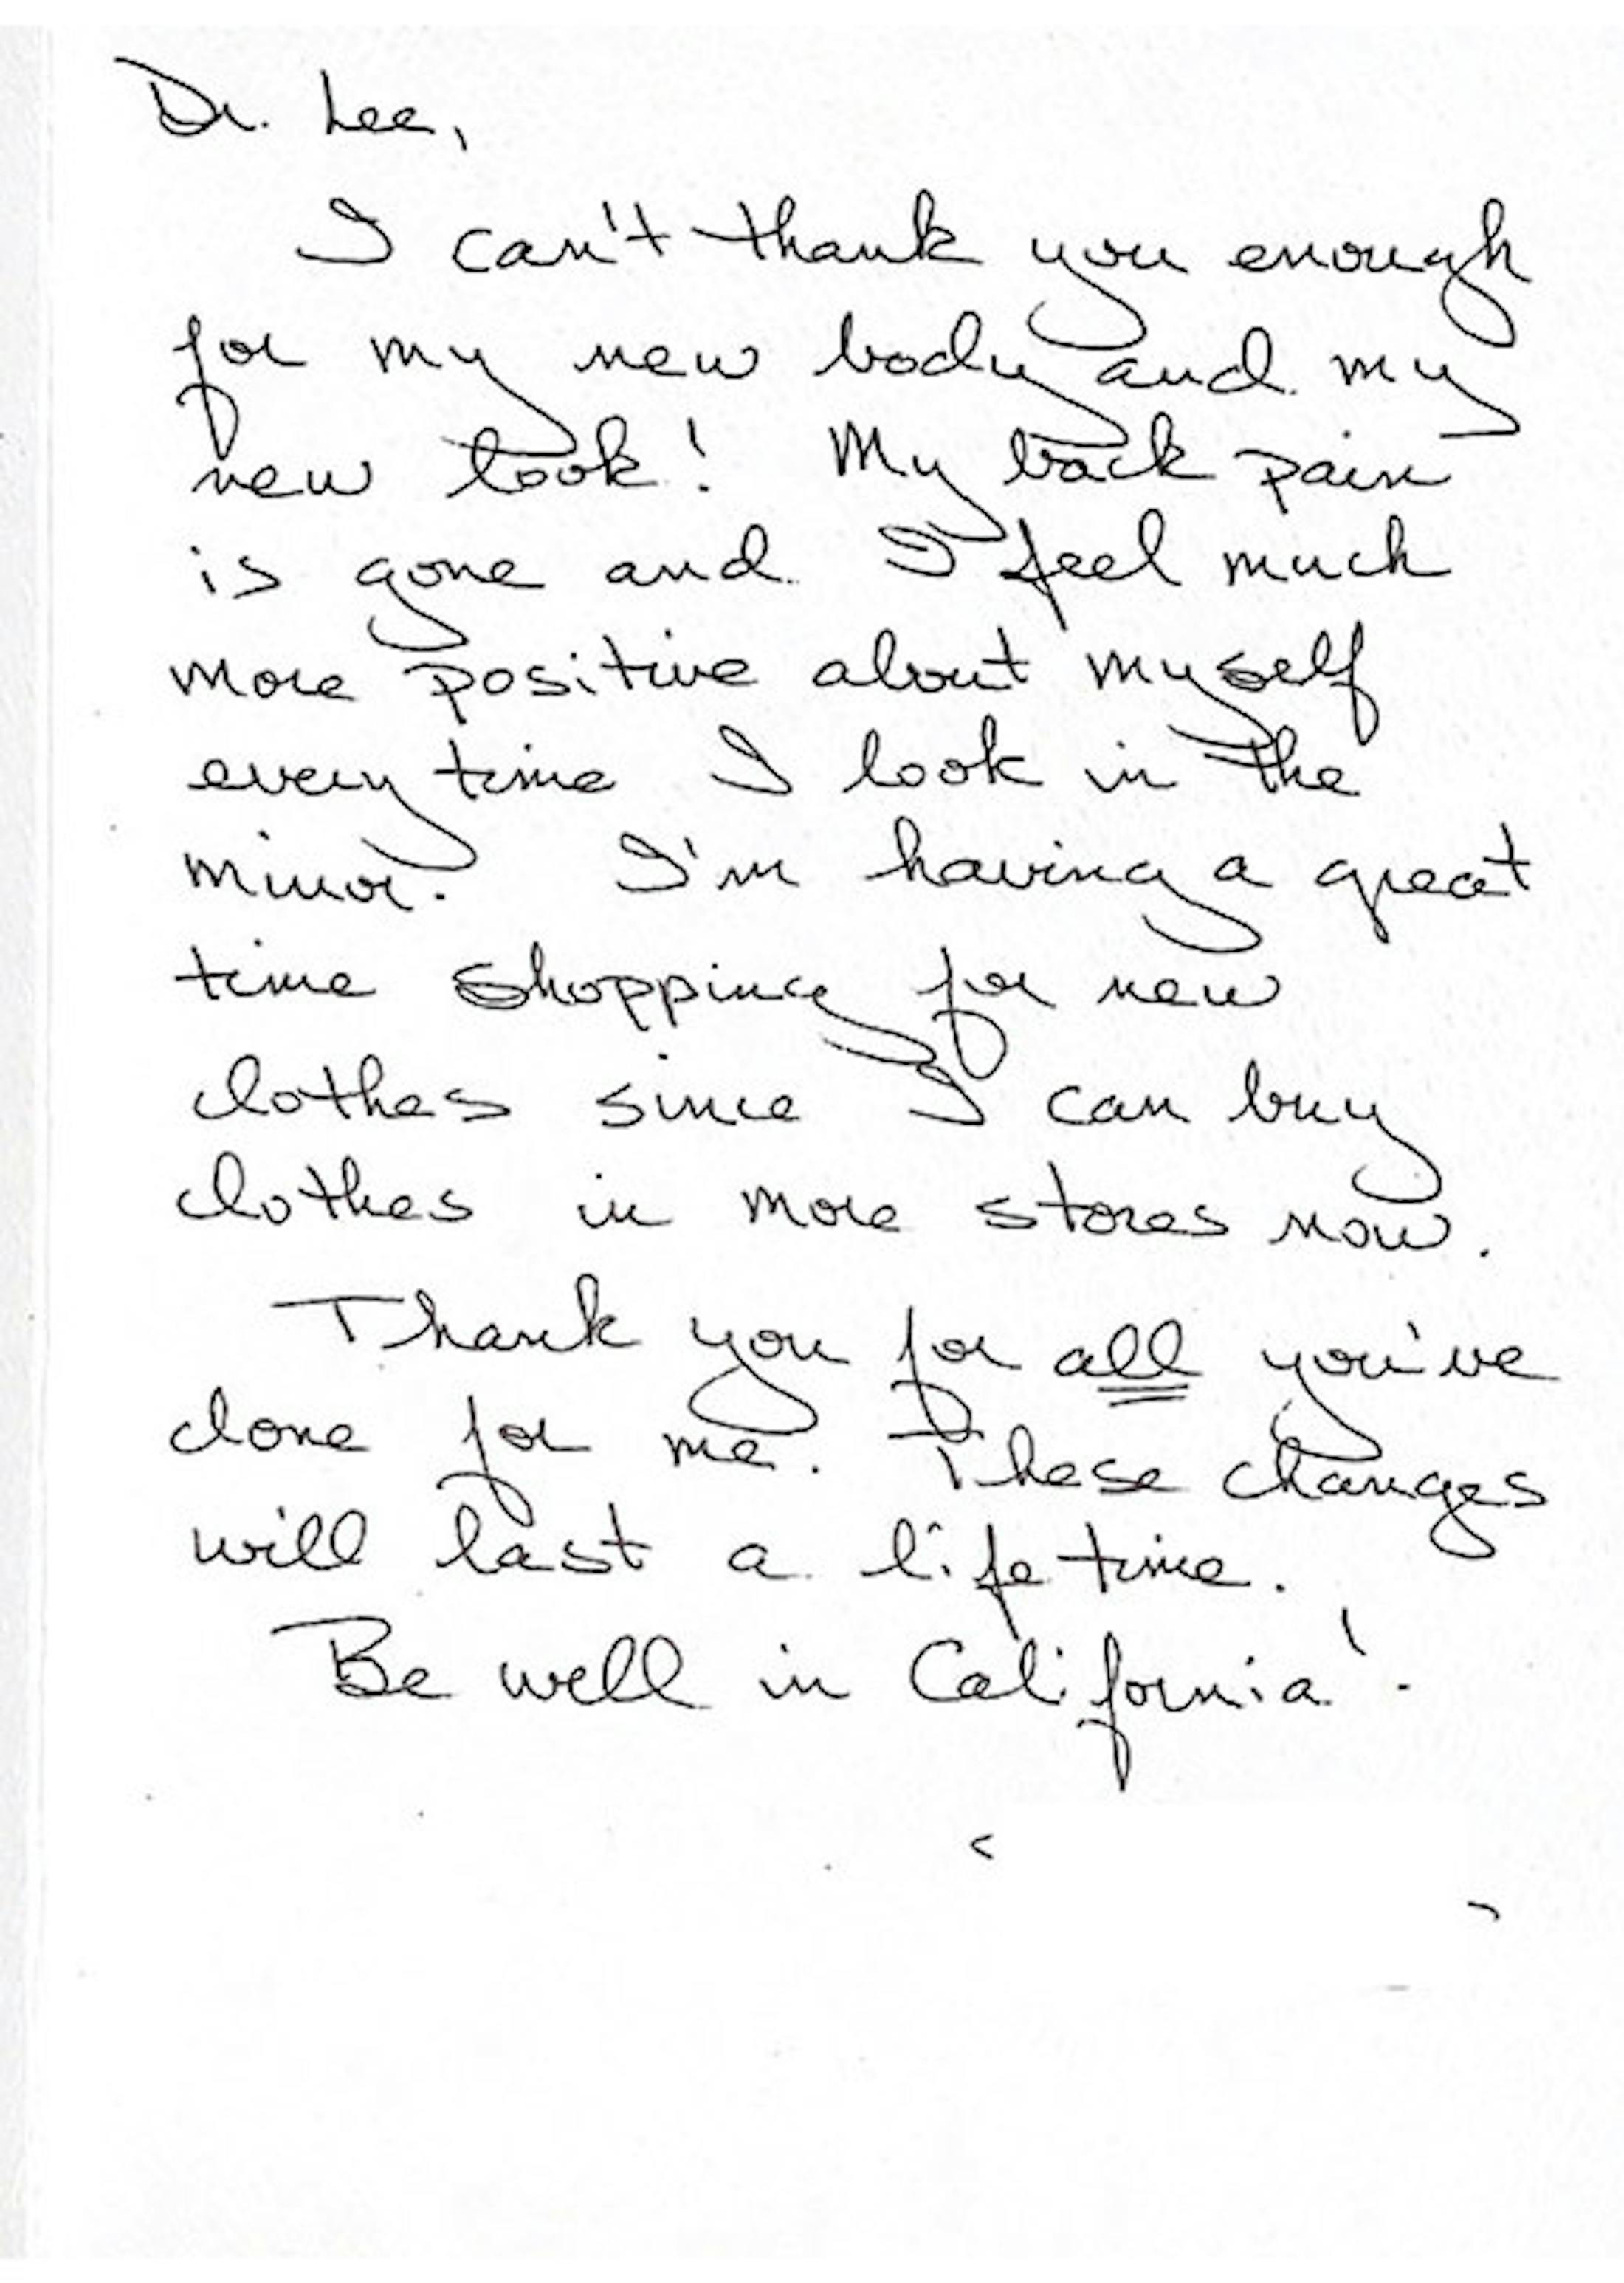 Dr. Lee,
I can't thank you enough
for my new body and my
new look! My back pain
is gone and I feel much
more positive about myself
every time I look in the
mirror. I'm having a great
time shopping for new
clothes since I can buy
clothes in more stores now.
Thank you for all you've
done for me. These changes
will last a lifetime.
Be well in California!